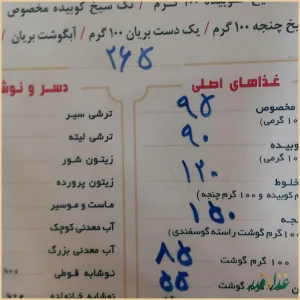 تک سیخ کوبیده مخصوص
یخ چنجه ۱۰۰ گرم / یک دست بریان ۱۰۰ گرم / آبگوشت بریان
۲۶۵
غذاهای اصلی
مخصوص
۹۵
۱۰۰ گرمی)
وبیده
۹۰
۱۰۰ گرمی)
خلوط
۱۲۰
م کوبیده و ۱۰۰ گرم چنجه)
جه
۱۵۰
گرم گوشت راسته گوسفندی)
۸۵
۱۰۰ گرم گوشت
۵۵
دسر و نوش
ترشی سیر
ترشی لیته
زیتون شور
زیتون پرورده
ماست و موسیر
آب معدنی کوچک
آب معدنی بزرگ
نوشابه قوطی
نوشابه خانواده